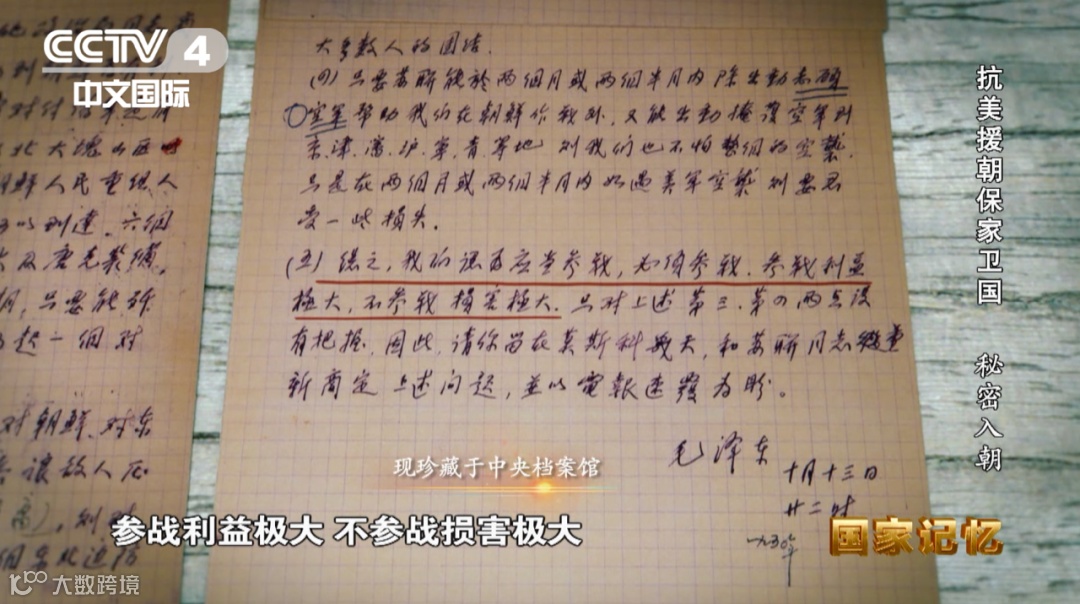 CCTV 4
中文国际
抗美援朝保家卫国 秘密入朝
北大塊山區
朝鮮人民重組人
可以到達. 六個
對朝鮮. 對東
大多数人的团结.
(四) 只要苏联能於两個月或两個半月内除出動志願
空军帮助我们在朝鮮作战外, 又能出動掩護空军到
京、津、瀋、沪、寧、青等地 则我们也不怕整個的空襲,
只是在两個月或两個半月内如遇美军空襲则要忍
受一些损失.
(五) 总之, 我们認為應當参戰, 必须参戰. 参戰利益
極大, 不参戰損害極大. 只對上述第三、第四两点没
有把握, 因此, 请你留在莫斯科幾天, 和苏联同志重
新商定上述问题, 並以電報速覆为盼.
毛泽东
十月十三日
廿二时
一九五〇年
现珍藏于中央档案馆
参战利益极大 不参战损害极大
国家记忆
大数跨境